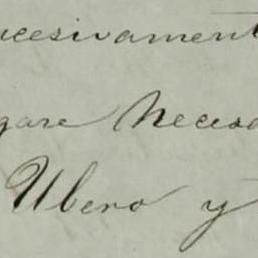 ucesivament
gare Necesa
Ubero y